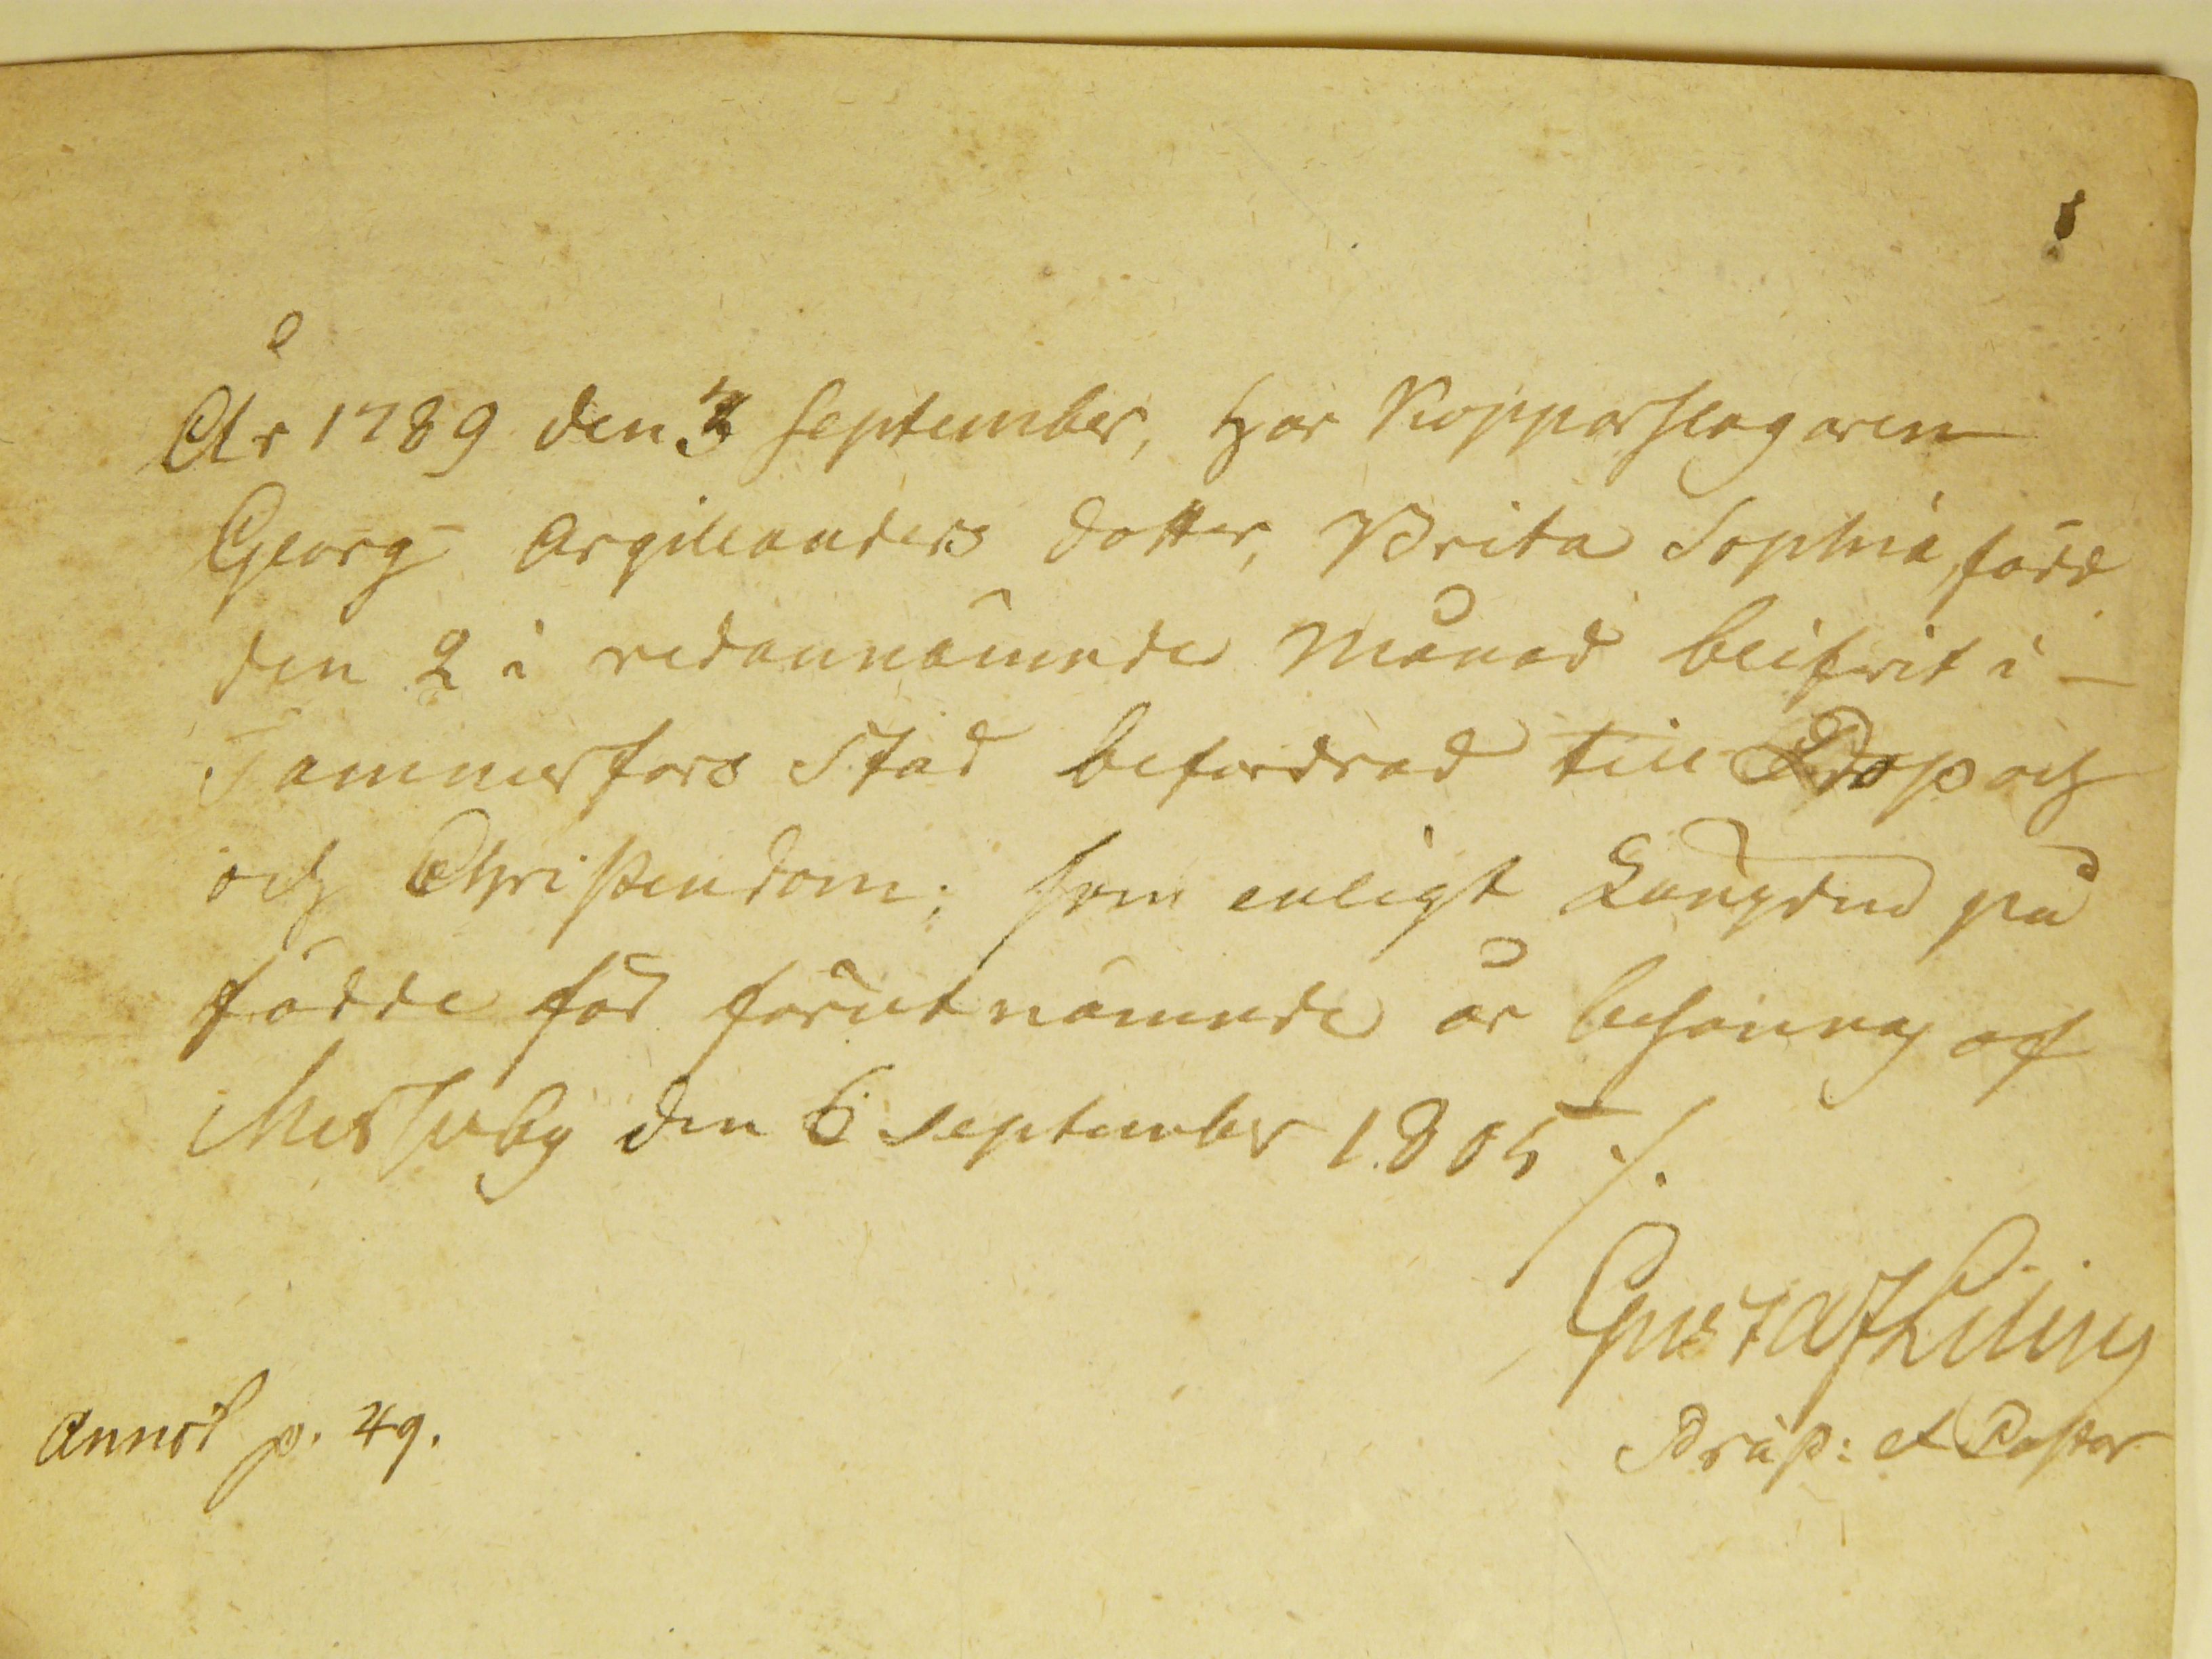 År 1789 den 3 September, har Kopparslagaren
Georg Argillanders dotter, Brita Sophia, född
den 2 i redannämnde Månad blifvit i
Tammerfors Stad befordrad till Dop och
och Christendom; som enligt Längden på
födde för förutnämnde år besannas af
Messuby den 6 September 1805 ./.
Gustaf Lilius
Præp: et Pastor
Annot p. 49.